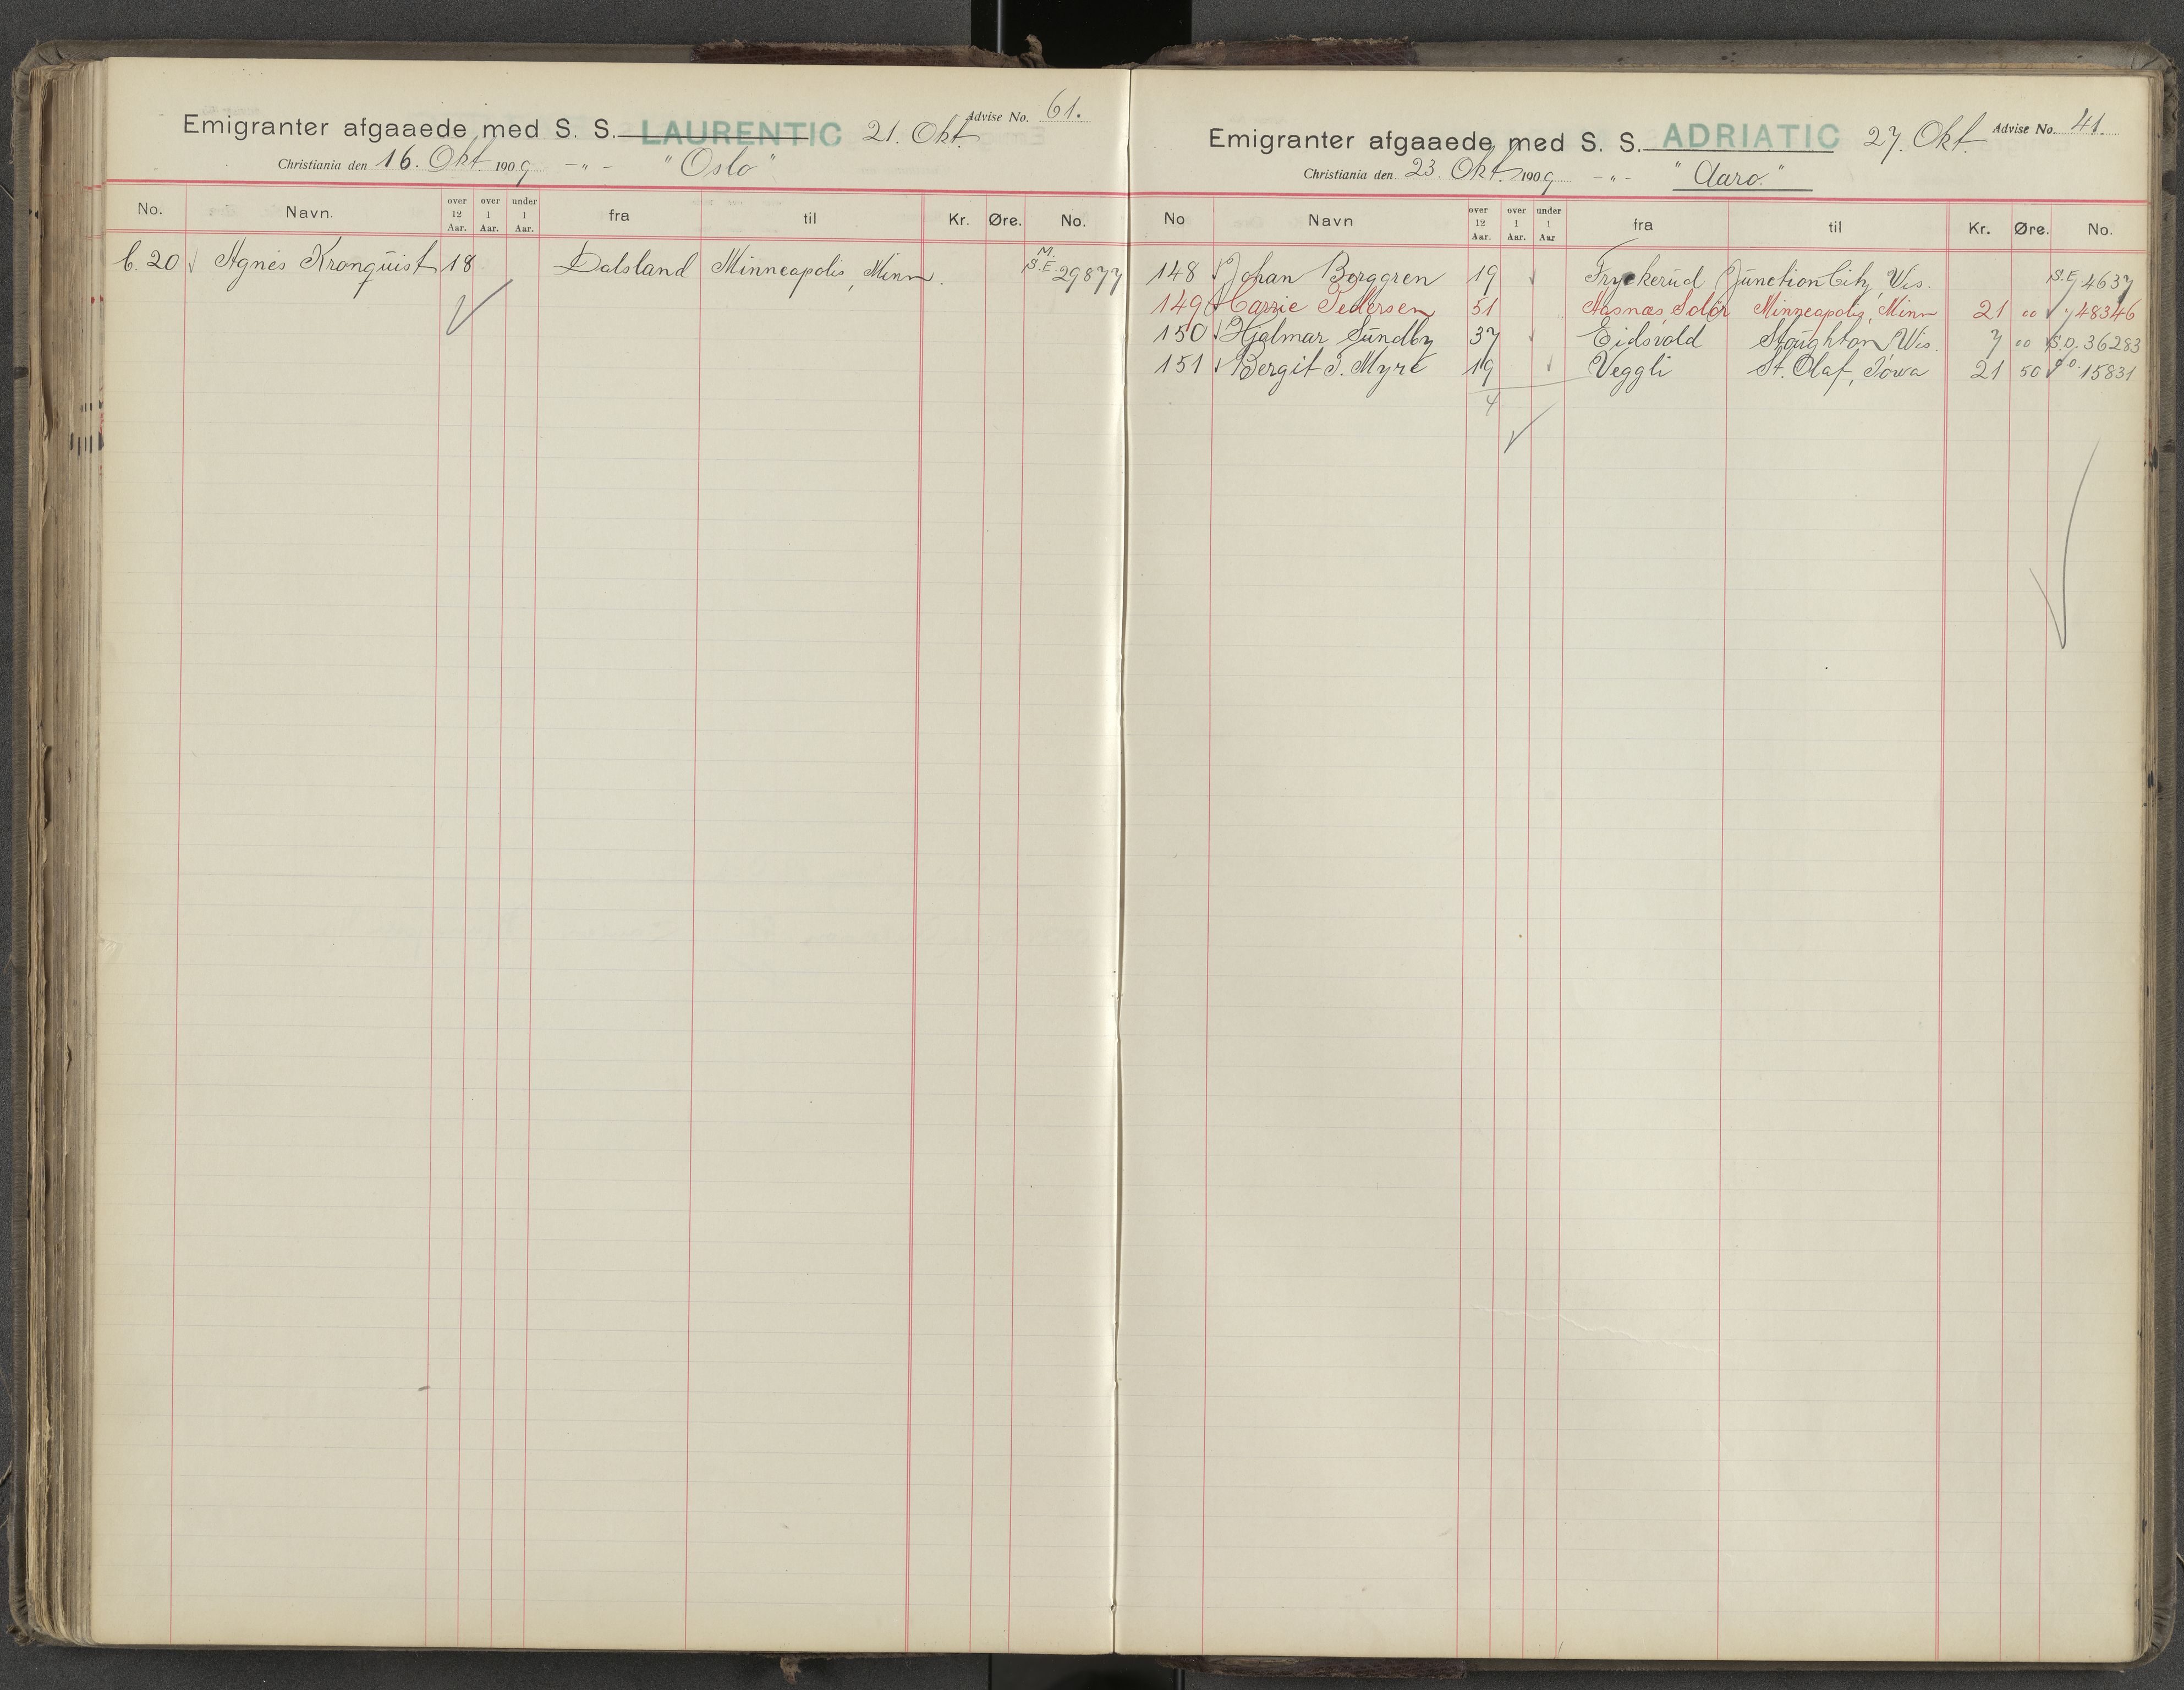 Emigranter afgaaede med S. S. LAURENTIC 21. Okt. Advise No. 61.
Christiania den 16. Okt. 1909 -"- "Oslo"
No. Navn. over 12 Aar. over 1 Aar. under 1 Aar. fra til Kr. Øre. No.
C. 20 Agnes Kronquist 18 Dalsland Minneapolis, Minn. M. S.E. 29877
Emigranter afgaaede med S. S. ADRIATIC 27. Okt. Advise No. 41.
Christiania den 23. Okt. 1909 -"- "Aaro."
No Navn over 12 Aar. over 1 Aar. under 1 Aar fra til Kr. Øre. No.
148 Johan Borggren 19 Fryckerud Junction City, Wis. S.E. 4637
149 Carrie Pedersen 51 Aasnæs, Solør Minneapolis, Minn 21 00 48346
150 Hjalmar Sundby 37 Eidsvold Stoughton, Wis. 7 00 S.O. 36283
151 Bergit T. Myre 19 Veggli St. Olaf, Iowa 21 50 15831
4